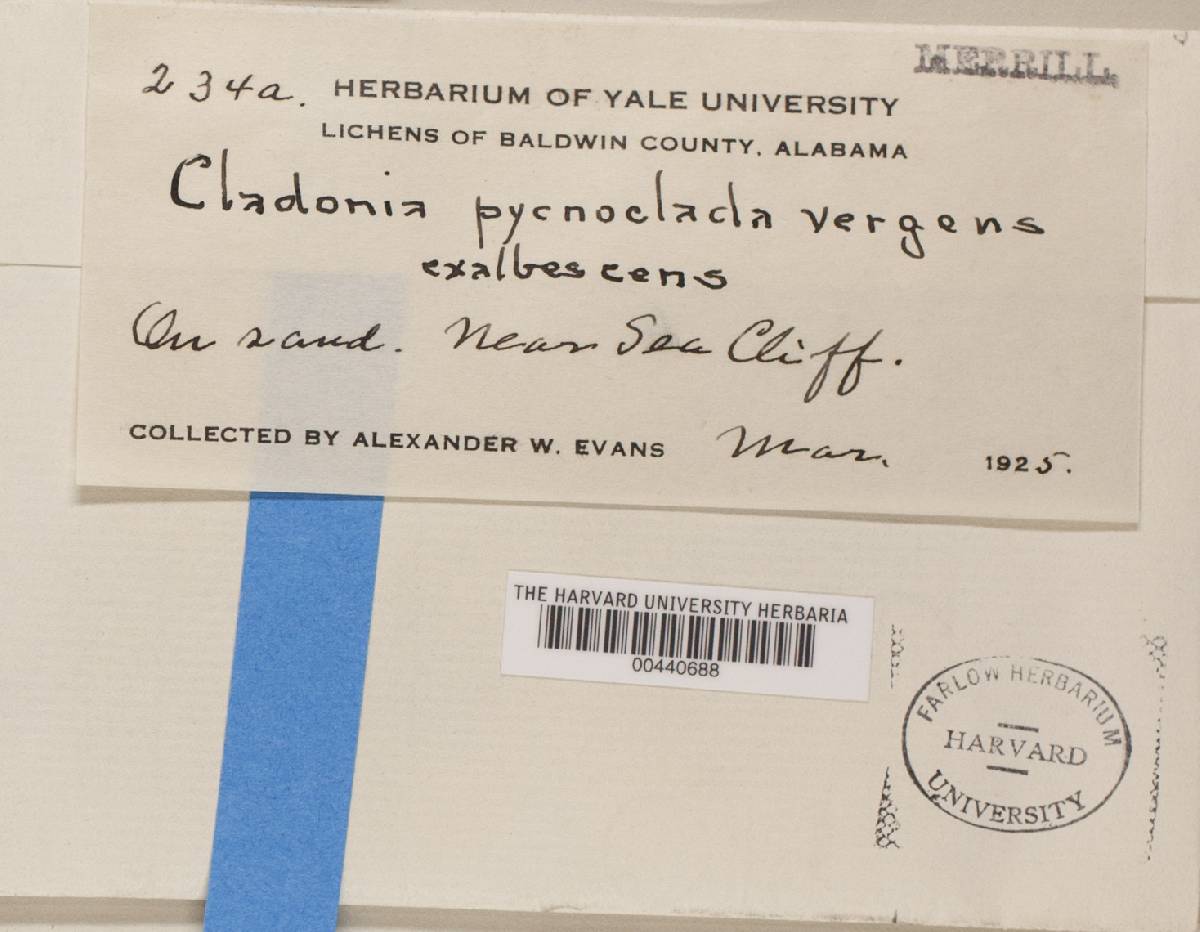 MERRILL
234a. HERBARIUM OF YALE UNIVERSITY
LICHENS OF BALDWIN COUNTY, ALABAMA
Cladonia pycnoclada vergens
exalbescens
On sand. Near Sea Cliff.
COLLECTED BY ALEXANDER W. EVANS Mar. 1925.
THE HARVARD UNIVERSITY HERBARIA
00440688
FARLOW HERBARIUM
HARVARD
UNIVERSITY